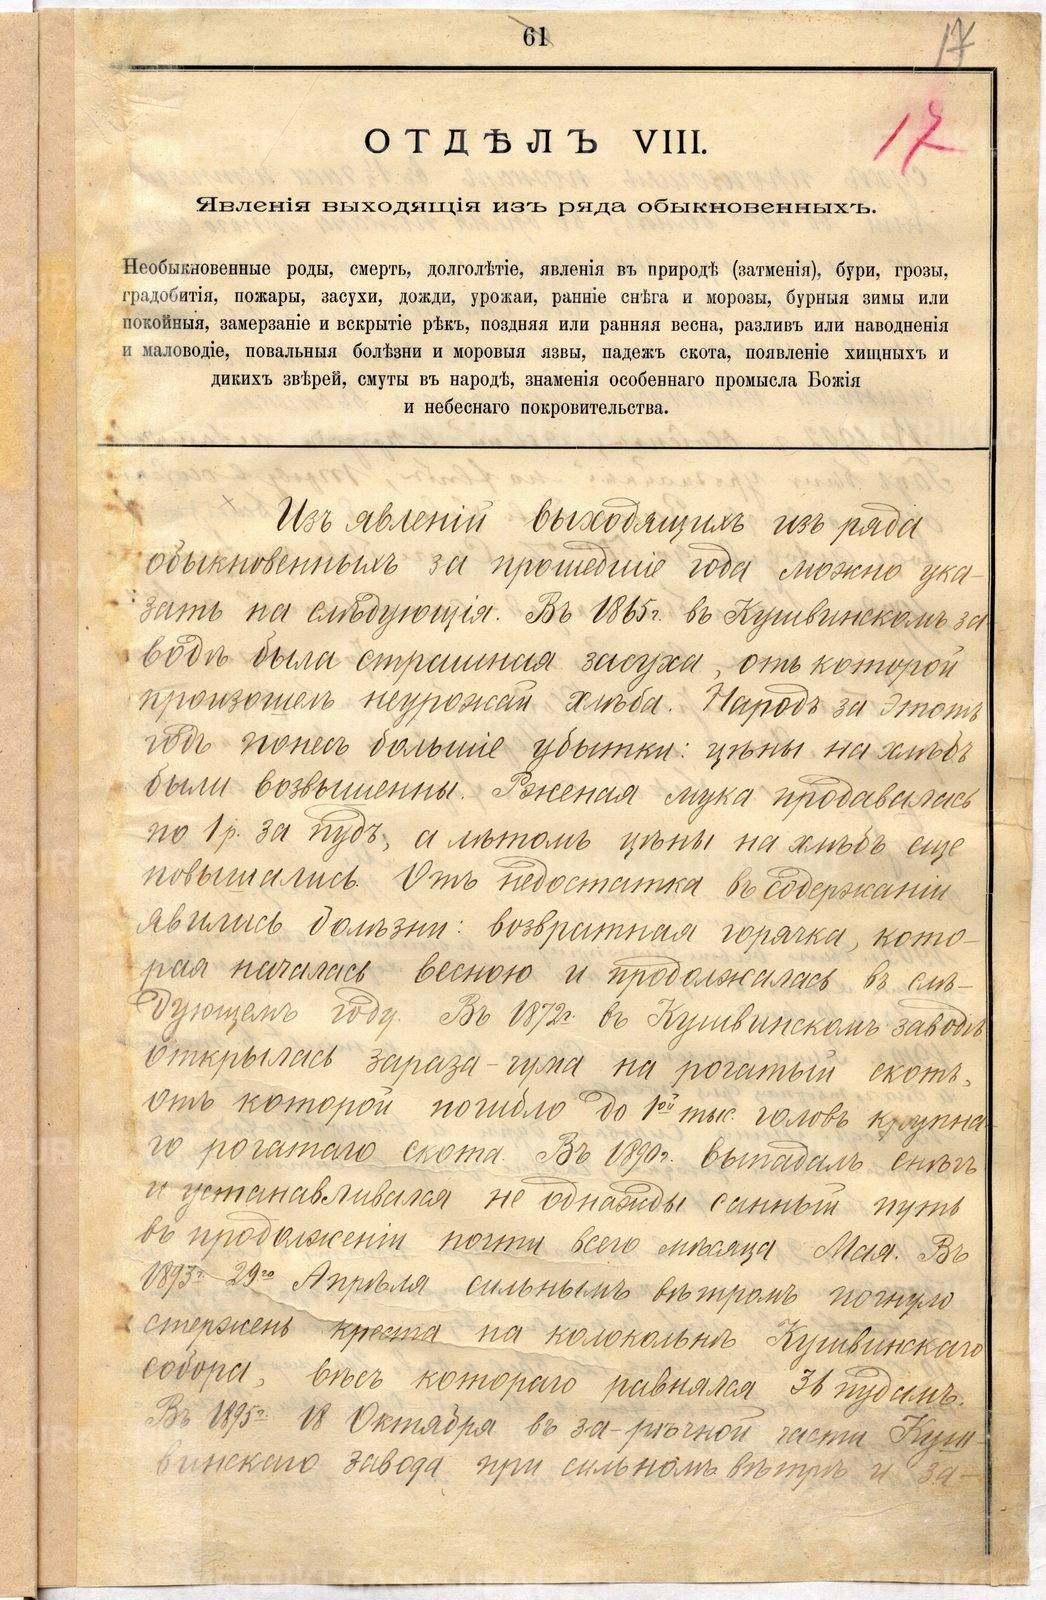 61
17
17
ОТДѢЛЪ VIII.
Явленія выходящія изъ ряда обыкновенныхъ.
Необыкновенные роды, смерть, долголѣтіе, явленія въ природѣ (затменія), бури, грозы,
градобитія, пожары, засухи, дожди, урожаи, ранніе снѣга и морозы, бурныя зимы или
покойныя, замерзаніе и вскрытіе рѣкъ, поздняя или ранняя весна, разливъ или наводненія
и маловодіе, повальныя болѣзни и моровыя язвы, падежъ скота, появленіе хищныхъ и
дикихъ звѣрей, смуты въ народѣ, знаменія особеннаго промысла Божія
и небеснаго покровительства.
Изъ явленій выходящихъ изъ ряда
обыкновенныхъ за прошедшіе года можно ука-
зать на слѣдующія. Въ 1865г. въ Кушвинскомъ за
водѣ была страшная засуха, отъ которой
произошелъ неурожай хлѣба. Народъ за этотъ
годъ понесъ большіе убытки: цѣны на хлѣбъ
были возвышенны. Рженая мука продавалась
по 1р. за пудъ, а лѣтомъ цѣны на хлѣбъ еще
повышались. Отъ недостатка въ содержаніи
явились болѣзни: возвратная горячка, кото-
рая началась весною и продолжалась въ слѣ-
дующемъ году. Въ 1872г. въ Кушвинскомъ заводѣ
открылась зараза-чума на рогатый скотъ,
отъ которой погибло до 1ой тыс. головъ крупна-
го рогатаго скота. Въ 1890г. выпадалъ снѣгъ
и устанавливался не однажды санный путь
въ продолженіи почти всего мѣсяца Мая. Въ
1893г. 29го Апрѣля сильнымъ вѣтромъ погнуло
стержень креста на колокольнѣ Кушвинскаго
собора, вѣсъ котораго равнялся 36 пудамъ.
Въ 1895г. 18 Октября въ за-рѣчной части Куш-
винскаго завода при сильномъ вѣтрѣ и за-